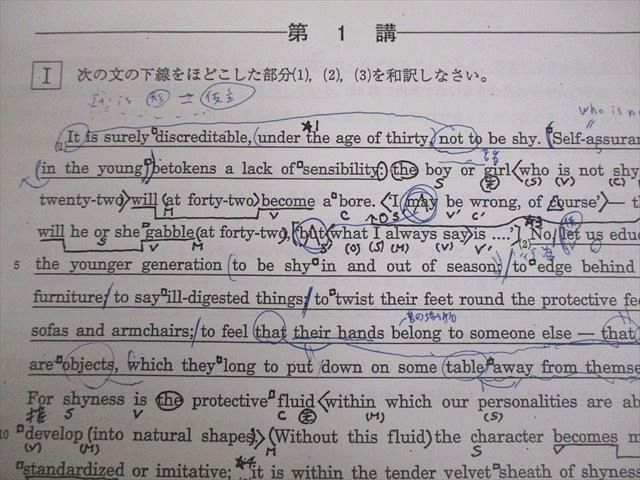 第 1 講
I 次の文の下線をほどこした部分(1), (2), (3)を和訳しなさい。
It is 形 = 仮主
who is no
(1) It is surely discreditable, under the age of thirty, not to be shy. Self-assuran
in the young betokens a lack of sensibility: the boy or girl who is not shy
twenty-two will (at forty-two) become a bore. 'I may be wrong, of course' — th
will he or she gabble (at forty-two), 'but what I always say is ....' (2) No, let us edu
5 the younger generation to be shy in and out of season; to edge behind
furniture; to say ill-digested things; to twist their feet round the protective fe
sofas and armchairs; to feel that their hands belong to someone else — that
are objects, which they long to put down on some table away from themse
For shyness is the protective fluid within which our personalities are ab
10 develop into natural shapes. Without this fluid the character becomes m
standardized or imitative; it is within the tender velvet sheath of shyness